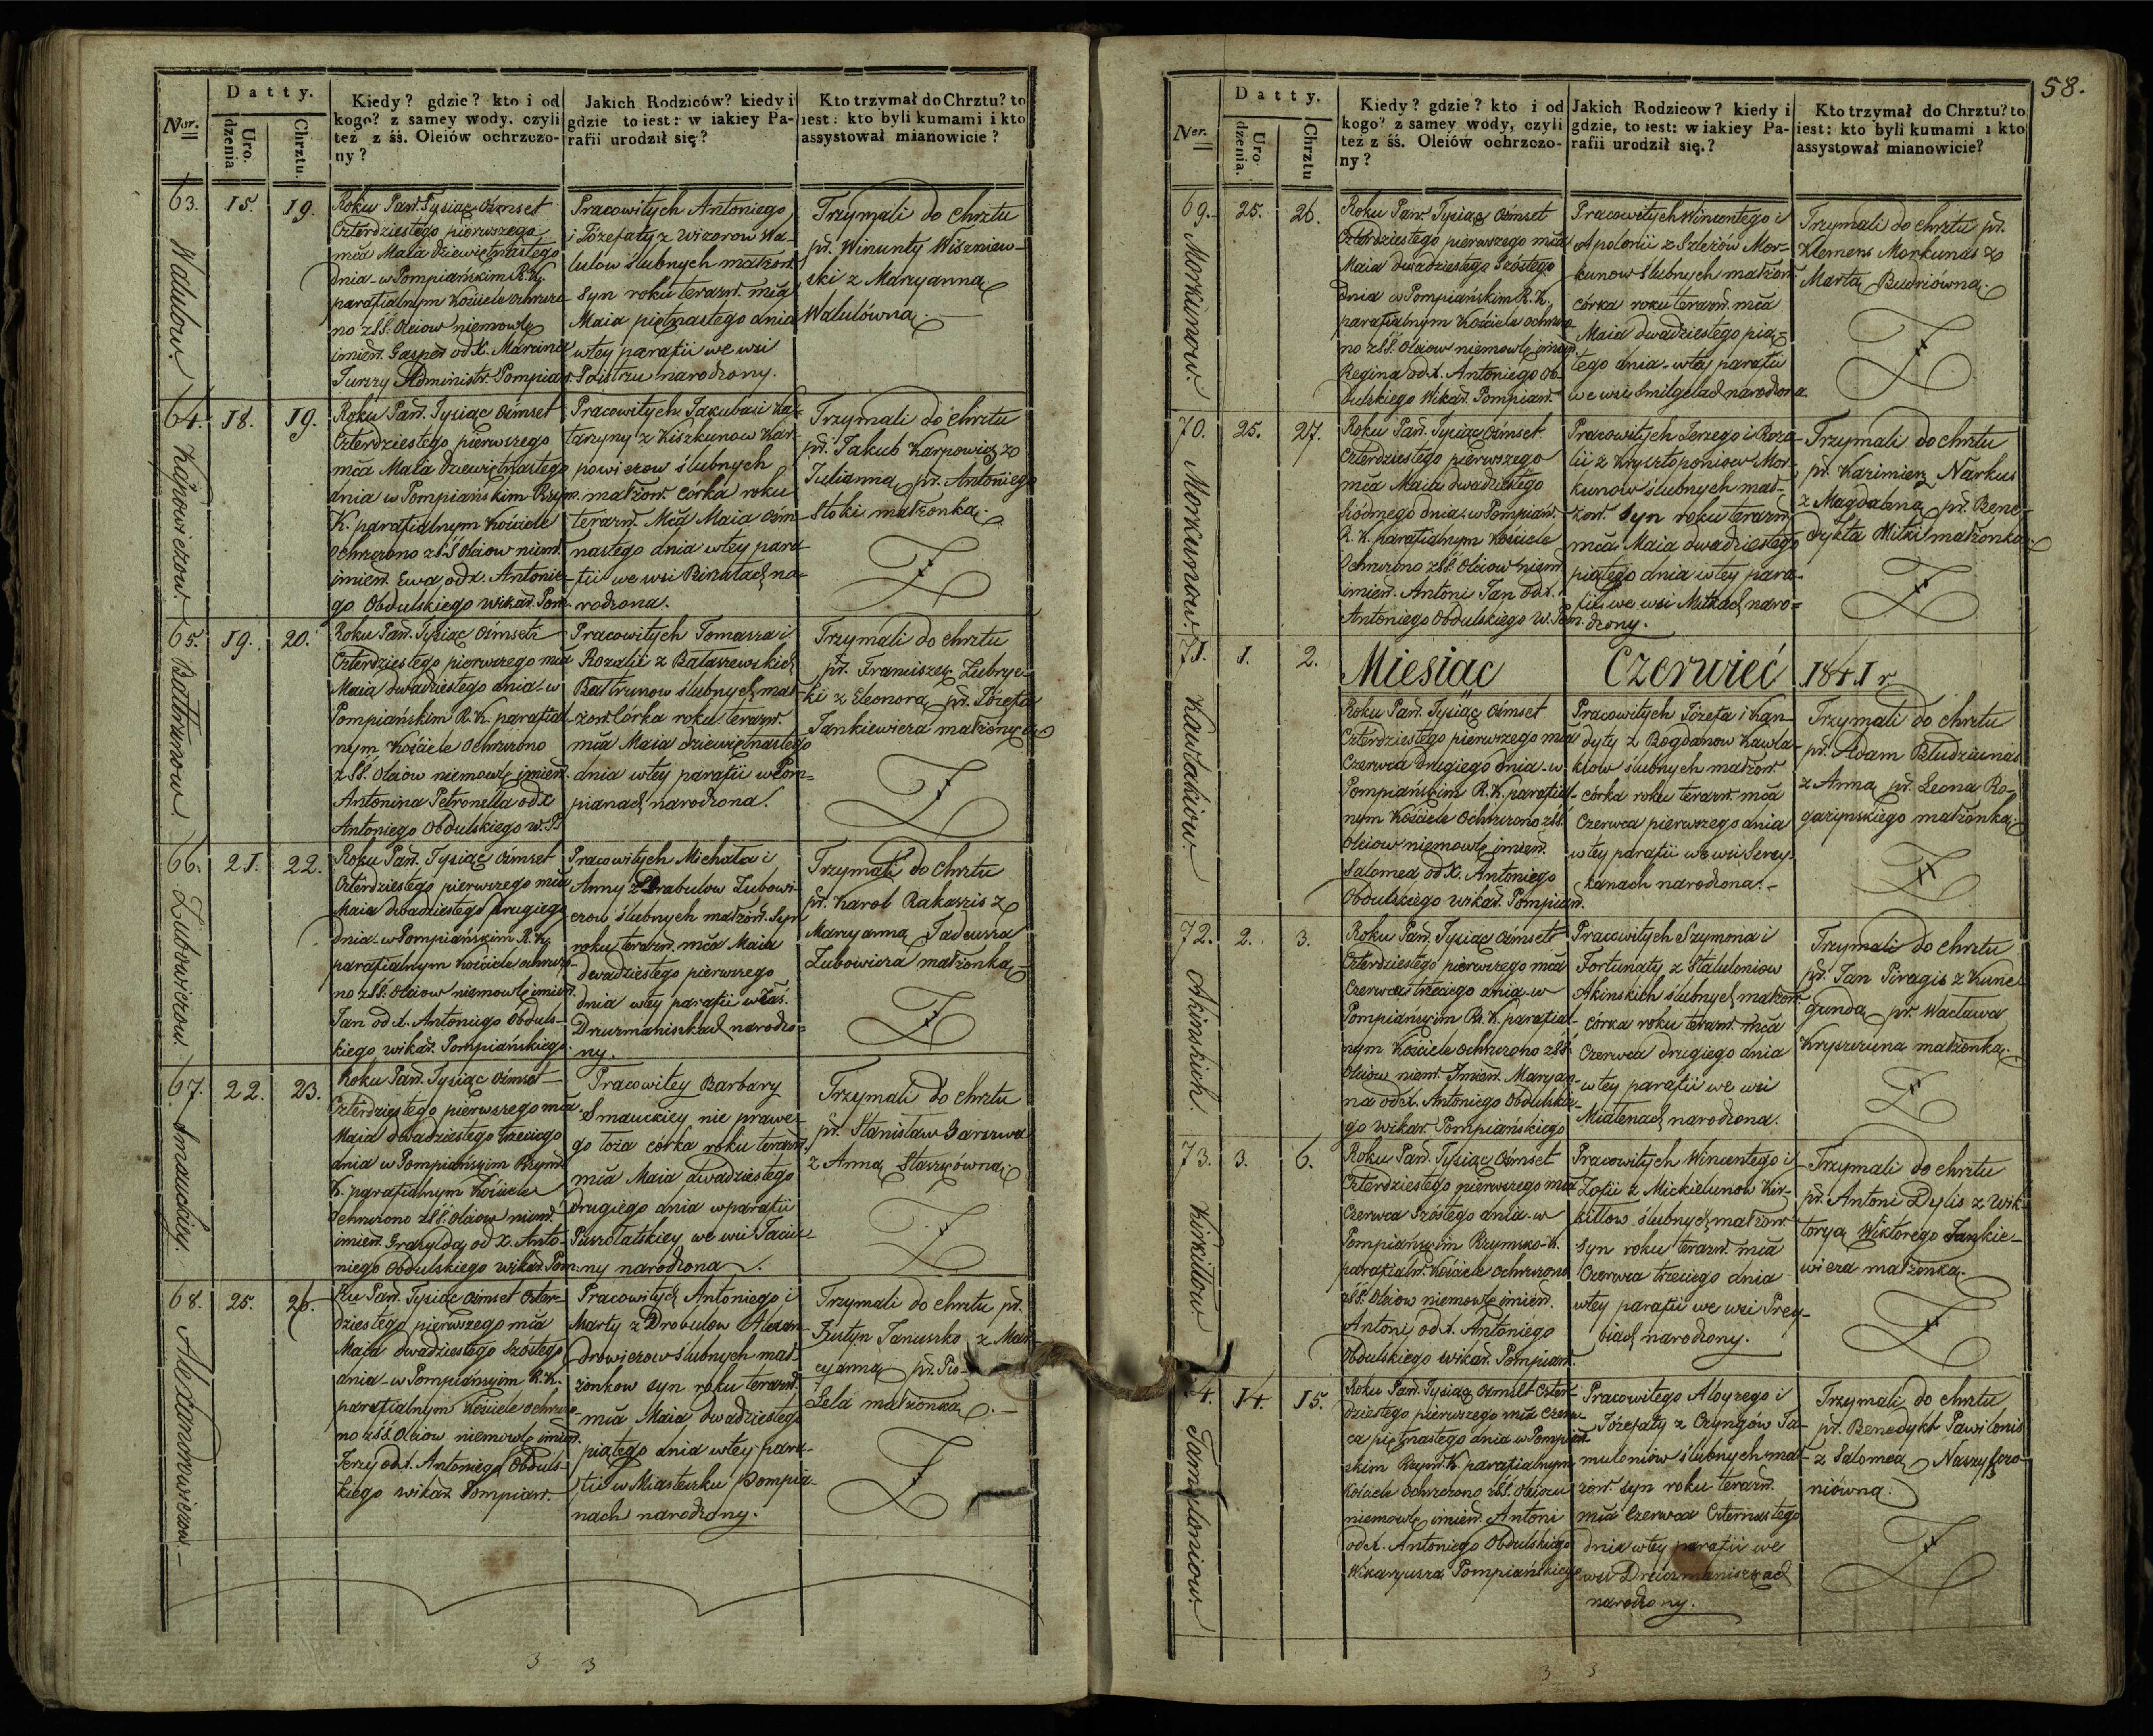 Datty.
Nor.
Uro. dzenia.
Chrztu.
Kiedy? gdzie? kto i od
kogo? z samey wody, czyli
też z śś. Oleiów ochrzczo-
ny?
Jakich Rodziców? kiedy i
gdzie to iest: w iakiey Pa-
rafii urodził się?
Kto trzymał do Chrztu? to
iest: kto byli kumami i kto
assystował mianowicie?
63.
Walulow.
15.
19.
Roku Pań. Tysiąc ośmset
Czterdziestego pierwszego
mca Maia dziewiętnastego
dnia w Pompiańskim R. K.
parafialnym Kościele ochrzczo-
no z SS. Oleiow niemowlę
imień. Gasper od X. Marcina
Turzy Administr. Pompiań.
Pracowitych Antoniego
i Józefaty z Wizorow Wa-
lulow ślubnych małżon.
syn roku teraźn. mca
Maia piętnastego dnia
w tey parafii we wsi
Poistrzu narodzony.
Trzymali do chrztu
pr. Wincenty Wiszniew-
ski z Maryanną
Walulówną.
64.
18.
19.
Roku Pań. Tysiąc ośmset
Czterdziestego pierwszego
mca Maia dziewiętnastego
dnia w Pompiańskim Rzym.
K. parafialnym Kościele
ochrzczono z SS Oleiow niem.
imień. Ewa od X. Antonie-
go Obdulskiego Wikar. Pom.
Pracowitych Jakuba i Ka-
tarzyny z Kiszkunow Kar-
powiczow ślubnych
małżon. córka roku
teraźn. Mca Maia ośm-
nastego dnia w tey para-
fii we wsi Birżulach na-
rodzona.
Trzymali do chrztu
pr. Jakub Karpowicz z
Julianną pr. Antoniego
Stoki małżonką.
65.
Baltrunow.
19.
20.
Roku Pań. Tysiąc ośmset
Czterdziestego pierwszego mca
Maia dwudziestego dnia w
Pompiańskim R. K. parafial-
nym Kościele ochrzczono
z SS. Oleiow niemowlę imień.
Antonina Petronella od X
Antoniego Obdulskiego W. P.
Pracowitych Tomasza i
Rozalii z Balaszewskich
Baltrunow ślubnych mał-
żon. Córka roku teraźn.
mca Maia dziewiętnastego
dnia w tey parafii w Pom-
pianach narodzona.
Trzymali do chrztu
pr. Franciszek Zubryc-
ki z Eleonorą pr. Józefa
Jankiewicza małżonką
66.
Lubowiczow.
21.
22.
Roku Pań. Tysiąc ośmset
Czterdziestego pierwszego mca
Maia dwadziestego drugiego
dnia w Pompiańskim R. K.
parafialnym Kościele ochrzczo-
no z SS. Oleiow niemowlę imień.
Jan od X. Antoniego Obduls-
kiego wikar. Pompiańskiego.
Pracowitych Michała i
Anny z Drabulow Lubowi-
czow ślubnych małżon. Syn
roku teraźn. mca Maia
dwadziestego pierwszego
dnia w tey parafii w Zaś.
Druczmaniszkach narodzo-
ny.
Trzymali do chrztu
pr. Karol Rakaszis z
Maryanną Tadeusza
Lubowicza małżonką
67.
Smauckiey.
22.
23.
Roku Pań. Tysiąc ośmset
Czterdziestego pierwszego mca
Maia dwadziestego trzeciego
dnia w Pompiańskim Rzym.
K. parafialnym Kościele
ochrzczono z SS. Oleiow niem.
imień. Grazylda od X. Anto-
niego Obdulskiego wikar. Pom.
Pracowitey Barbary
Smauckiey nie prawe-
go łoża córka roku teraźn.
mca Maia dwadziestego
drugiego dnia w parafii
Puszołatskiey we wsi
narodzona.
Trzymali do chrztu
pr. Stanisław Barszwa
z Anną Staszysówną
68.
Alexandrowiczow.
25.
26.
Ru Pań. Tysiąc ośmset Czter-
dziestego pierwszego mca
Maja dwadziestego szóstego
dnia w Pompiańskim R. K.
parafialnym Kościele ochrzczo-
no z SS. Oleiow niemowlę imień.
Jerzy od X. Antoniego Obduls-
kiego wikar. Pompiań.
Pracowitych Antoniego i
Marty z Drobulow Alexan-
drowiczow ślubnych mał-
żonkow syn roku teraźn.
mca Maia dwadziestego
piątego dnia w tey para-
fii w Miasteczku Pompia-
nach narodzony.
Trzymali do chrztu pr.
Justyn Januszko z Mar-
cyanną pr. Pio-
Lela małżonką.
3 3
58.
Datty.
Nor.
Uro dzenia.
Chrztu
Kiedy? gdzie? kto i od
kogo? z samey wody, czyli
też z śś. Oleiów ochrzczo-
ny?
Jakich Rodzicow? kiedy i
gdzie, to iest: w iakiey Pa-
rafii urodził się.?
Kto trzymał do Chrztu? to
iest: kto byli kumami i kto
assystował mianowicie?
69.
Morkunow.
25.
26.
Roku Pań. Tysiąc ośmset
Czterdziestego pierwszego mca
Maia dwadziestego szóstego
dnia w Pompiańskim R. K.
parafialnym Kościele ochrzczo-
no z SS. Oleiow niemowlę imień.
Regina od X. Antoniego Ob-
dulskiego Wikar. Pompiań.
Pracowitych Wincentego i
Apolonii z Szleżów Mor-
kunow ślubnych małżon.
córka roku teraźn. mca
Maia dwadziestego pią-
tego dnia w tey parafii
we wsi Smilgelach narodzona.
Trzymali do chrztu pr.
Klemens Morkunas z
Martą Budriówną.
70.
Morkunow.
25.
27.
Roku Pań. Tysiąc ośmset
Czterdziestego pierwszego
mca Maia dwadziestego
siódmego dnia w Pompiań.
R. K. parafialnym Kościele
ochrzczono z SS. Oleiow niem.
imień. Antoni Jan od X.
Antoniego Obdulskiego W. Pom.
Pracowitych Jerzego i Roza-
lii z Krysztoponisow Mor-
kunow ślubnych mał-
żon. syn roku teraźn.
mca Maia dwadziestego
piątego dnia w tey para-
fii we wsi Mitkach naro-
dzony.
Trzymali do chrztu
pr. Kazimierz Narkus
z Magdaleną pr. Bene-
dykta Mitki małżonką.
Miesiąc Czerwiec 1841 r.
71.
Kawlakiow.
1.
2.
Roku Pań. Tysiąc ośmset
Czterdziestego pierwszego mca
Czerwca drugiego dnia w
Pompiańskim R. K. parafial-
nym Kościele ochrzczono z SS.
Oleiow niemowlę imień.
Salomea od X. Antoniego
Obdulskiego wikar. Pompiań.
Pracowitych Józefa i Kan-
dyty z Bogdanow Kawla-
kiow ślubnych małżon.
córka roku teraźn. mca
Czerwca pierwszego dnia
w tey parafii we wsi Serey-
kanach narodzona.
Trzymali do chrztu
pr. Adam Bludziunas
z Anną pr. Leona Ro-
gażynskiego małżonką.
72.
Akinskich.
2.
3.
Roku Pań. Tysiąc ośmset
Czterdziestego pierwszego mca
Czerwca trzeciego dnia w
Pompiańskim R. K. parafial-
nym Kościele ochrzczono z SS
Oleiow niem. Imień. Maryan-
na od X. Antoniego Obdulskie-
go wikar. Pompiańskiego
Pracowitych Szymona i
Fortunaty z Staluloniow
Akinskich ślubnych małżon.
córka roku teraźn. mca
Czerwca drugiego dnia
w tey parafii we wsi
Mialenach narodzona.
Trzymali do chrztu
pr. Jan Piragis z Kune-
gundą pr. Wacława
Kryszczuna małżonką.
73.
Kirkitow
3.
6.
Roku Pań. Tysiąc ośmset
Czterdziestego pierwszego mca
Czerwca szóstego dnia w
Pompiańskim Rzymsko-K.
parafialn. Kościele ochrzczono
z SS. Oleiow niemowlę imień.
Antoni od X. Antoniego
Obdulskiego wikar. Pompiań.
Pracowitych Wincentego i
Zofii z Mickielunow Kir-
kitow ślubnych małżon.
syn roku teraźn. mca
Czerwca trzeciego dnia
w tey parafii we wsi Prey-
biach narodzony.
Trzymali do chrztu
pr. Antoni Dylis z Wik-
toryą Wiktorego Jankie-
wicza małżonką.
4.
Tamuloniow.
14.
15.
Roku Pań. Tysiąc ośmset Czter-
dziestego pierwszego mca Czerw-
ca piętnastego dnia w Pompiań-
skim Rzym. K. parafialnym
Kościele ochrzczono z SS. Oleiow
niemowlę imień. Antoni
od X. Antoniego Obdulskiego
Wikaryusza Pompiańskiego
Pracowitego Aloyzego i
Józefaty z Czyngów Ta-
muloniow ślubnych mał-
żon. syn roku teraźn.
mca Czerwca Czternastego
dnia w tey parafii we
wsi Druczmaniszkach
narodzony.
Trzymali do chrztu
pr. Benedykt Pawilonis
z Salomeą
niówną.
3 3